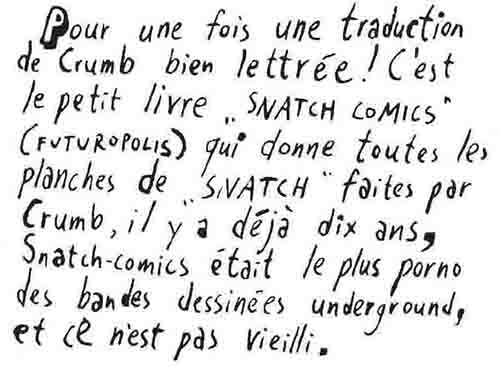 Pour une fois une traduction
de Crumb bien lettrée! C'est
le petit livre „SNATCH COMICS"
(FUTUROPOLIS) qui donne toutes les
planches de „SNATCH" faites par
Crumb, il y a déjà dix ans,
Snatch-comics était le plus porno
des bandes dessinées underground,
et ce n'est pas vieilli.